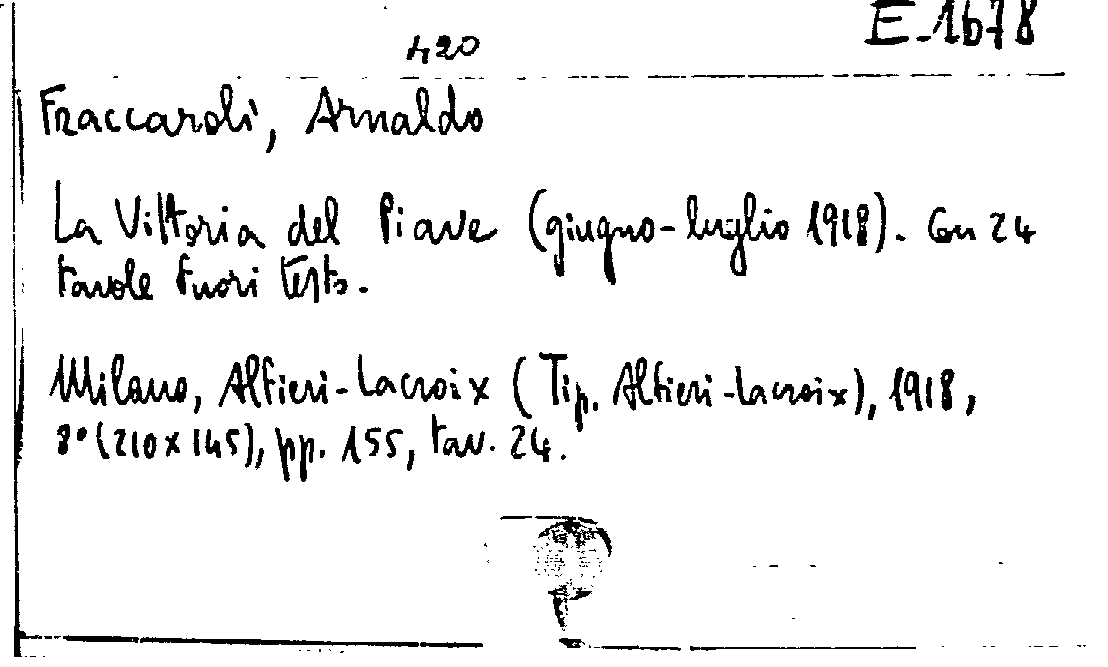 E-1678
420
Fraccaroli, Arnaldo
La Vittoria del Piave (giugno-luglio 1918). Con 24
tavole fuori testo.
Milano, Alfieri-Lacroix (Tip. Alfieri-Lacroix), 1918,
8° (210x145), pp. 155, tav. 24.